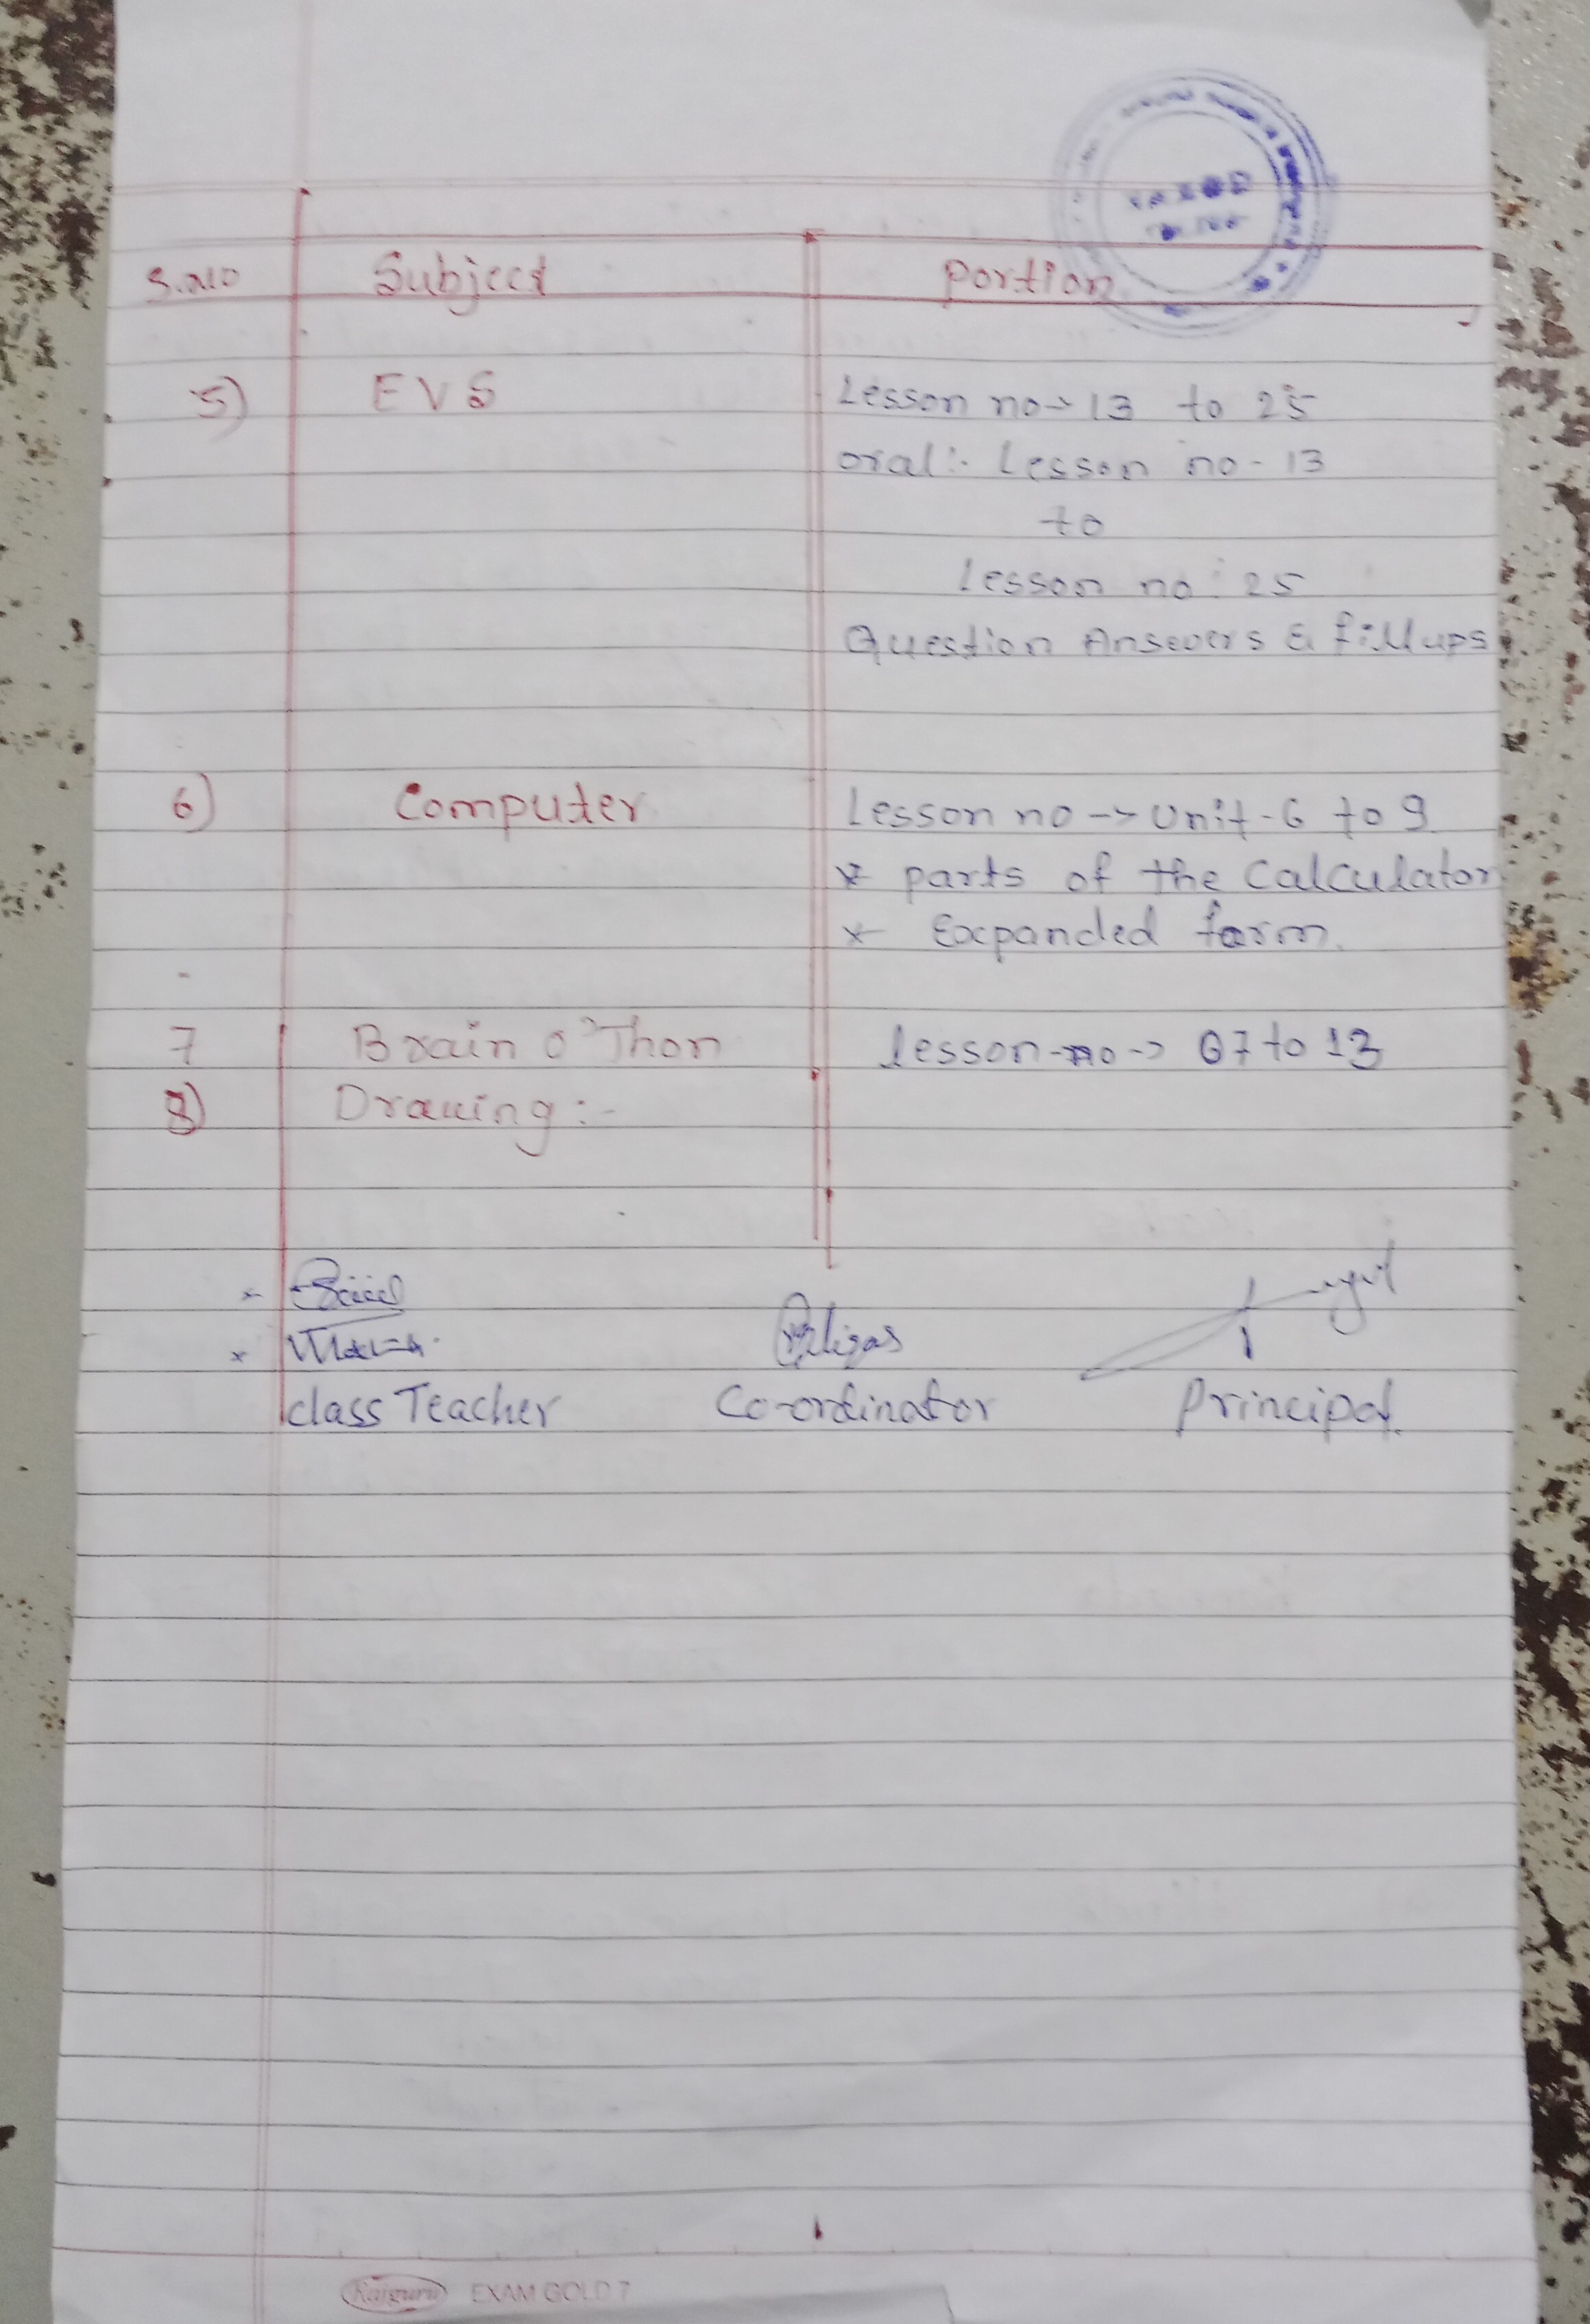 S.No Subject Portion
5) EVS Lesson no → 13 to 25
oral :- Lesson no - 13
to
Lesson no : 25
Question Answers & fillups
6) Computer Lesson no → Unit - 6 to 9
* parts of the Calculator
* Expanded form.
7 Brain O'Thon Lesson-no → 07 to 13
8) Drawing :-
Class Teacher Co-ordinator Principal.
Rajguru EXAM GOLD 7